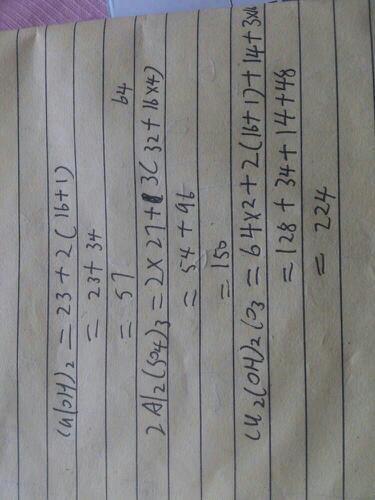 Ca(OH)2 = 23+2(16+1)
= 23+34
= 57
64
2Al2(SO4)3 = 2×27+3(32+16×4)
= 54+96
= 150
Cu2(OH)2CO3 = 64×2+2(16+1)+14+3×16
= 128+34+14+48
= 224